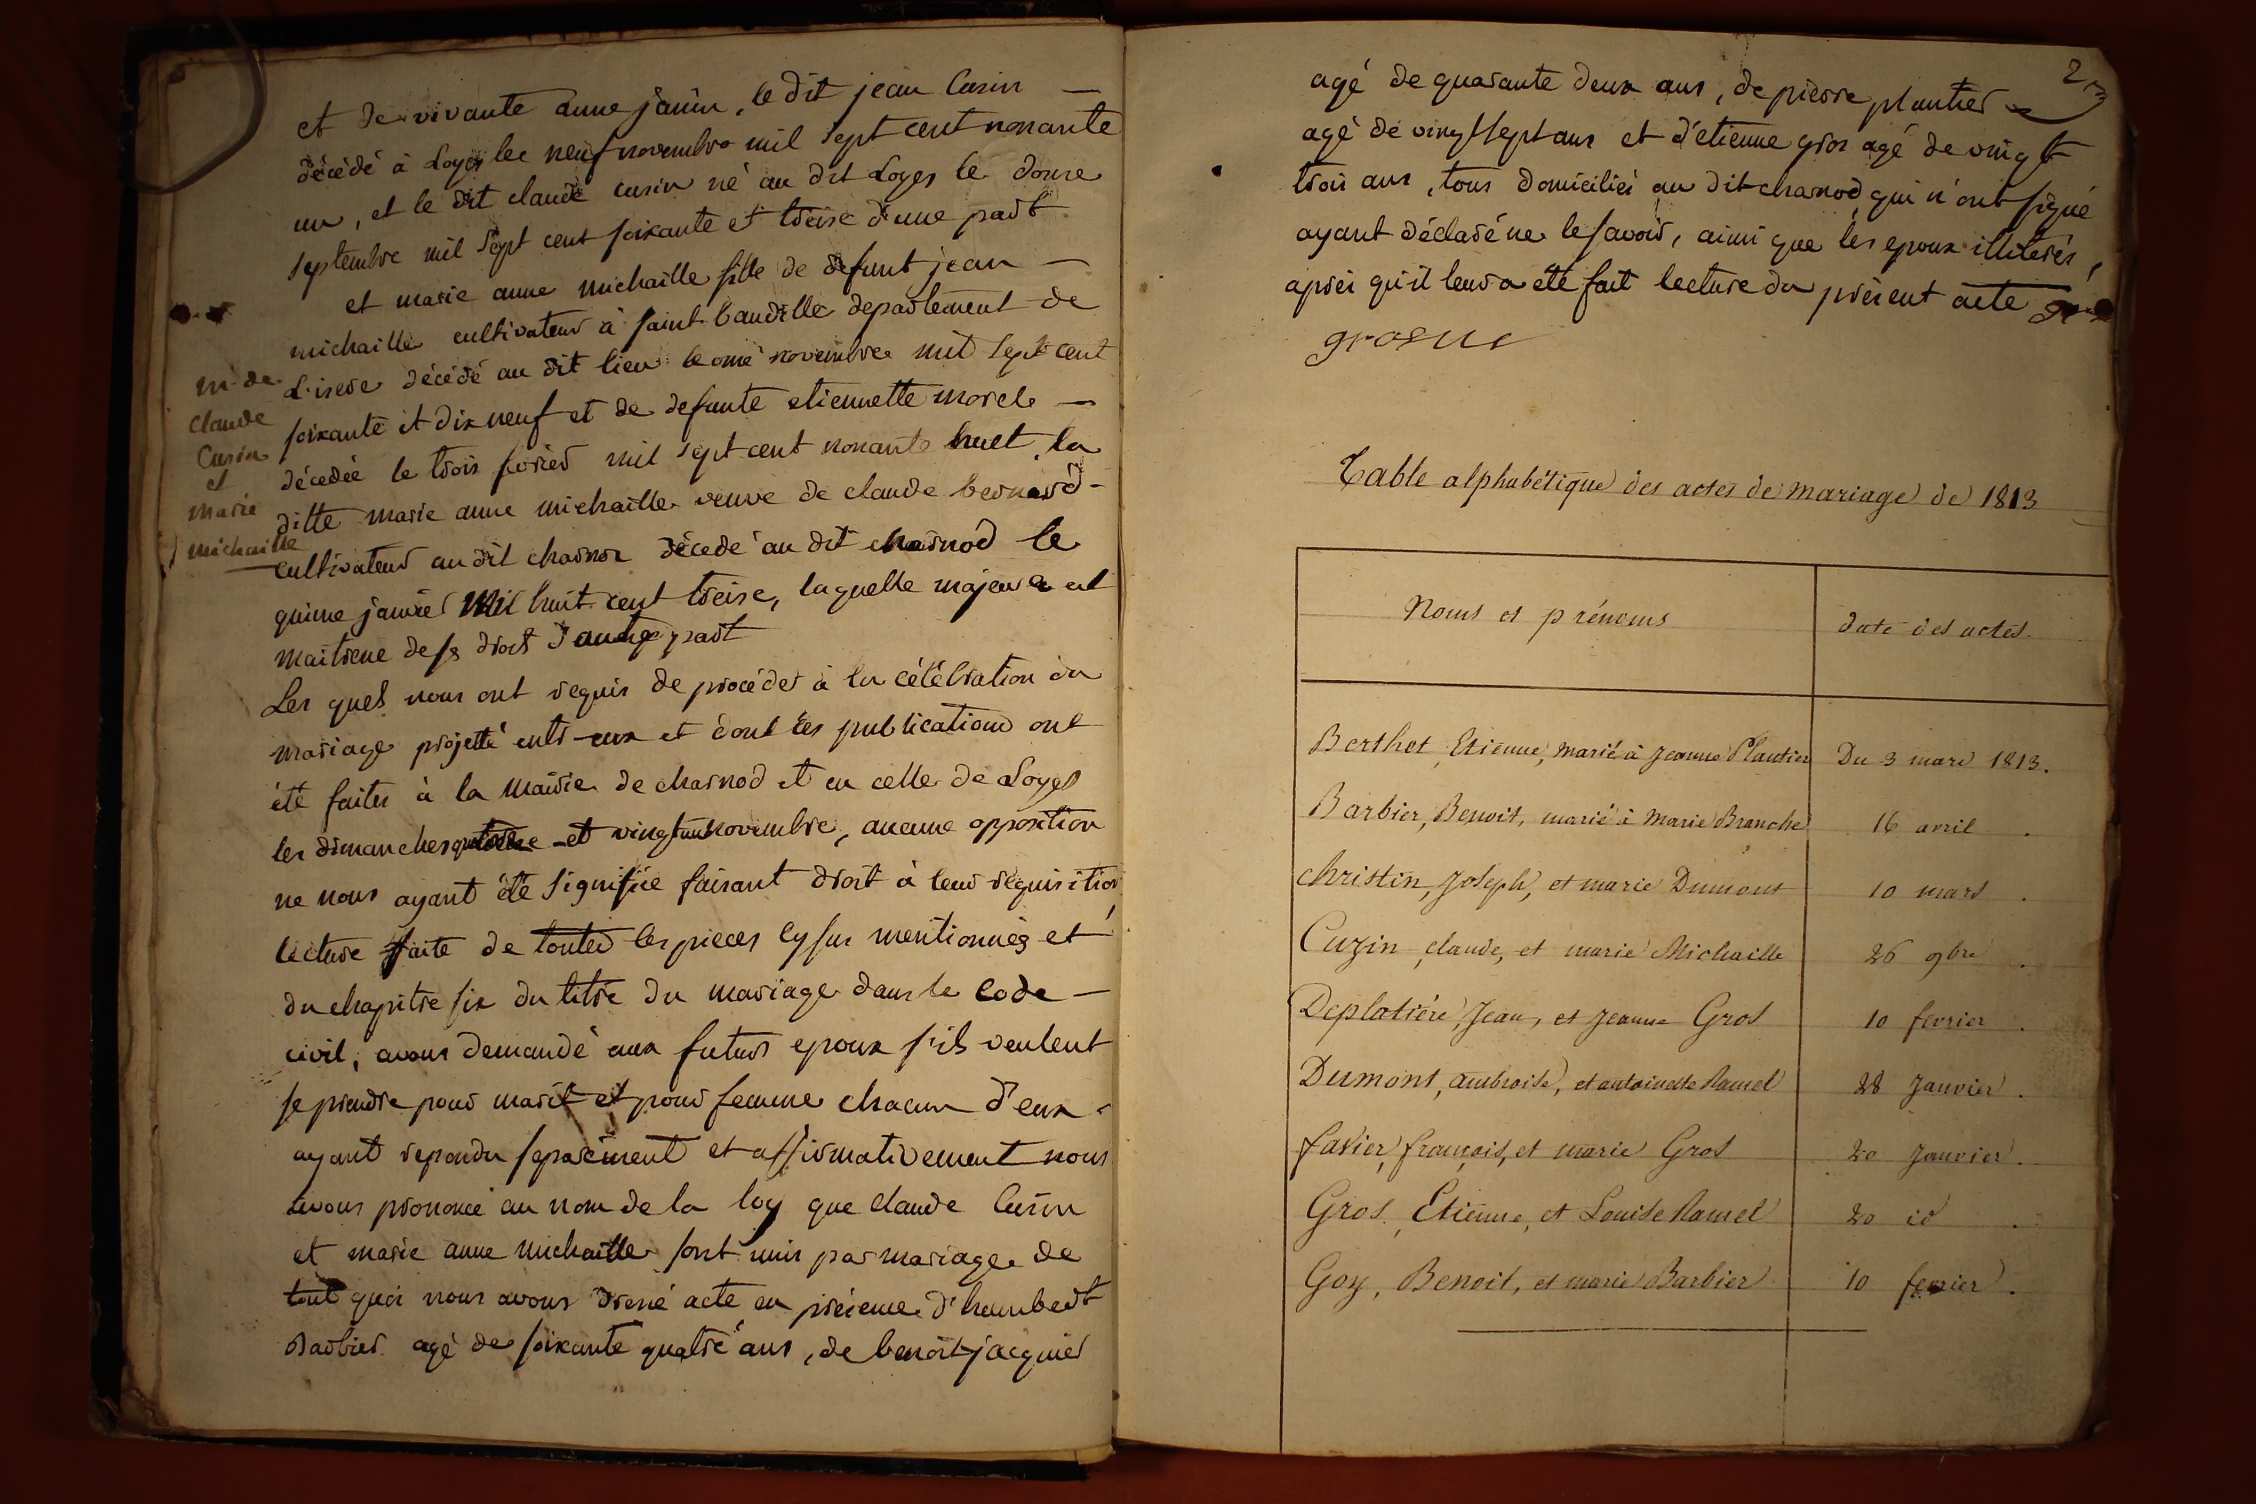 et de vivante anne janin, le dit jean Cusin
décédé à Loyes le neuf novembre mil sept cent nonante
un, et le dit claude cusin né au dit Loyes le douze
septembre mil sept cent soixante et treise d'une part
et marie anne michaille fille de defunt jean
michaille cultivateur à saint baudille departement de
L'isere décédé au dit lieu le onze novembre mil sept cent
soixante et dix neuf et de defunte etiennette morel
décedée le trois fevrier mil sept cent nonante huit, la
ditte marie anne michaille veuve de claude bernard
cultivateur au dit charnoz décedé au dit charnod le
quinze janvier mil huit cent treise, laquelle majeure et
maitresse de ses droits d'autre part
Les quels nous ont requis de procéder à la célébration du
mariage projetté entr eux et dont les publications ont
été faites à la mairie de charnod et en celle de Loyes
les dimanches quatorze et vingt un novembre, aucune opposition
ne nous ayant été signifiée faisant droit à leur réquisition
lecture faite de toutes les pieces cy sus mentionnés et
du chapitre six du titre du mariage dans le code
civil, avons demandé aux futurs epoux s'ils veulent
se prendre pour mari et pour femme chacun d'eux
ayant repondu separément et affirmativement nous
avons prononcé au nom de la loy que claude Cusin
et marie anne michaille sont unis par mariage de
tout quoi nous avons dressé acte en présence d'humbert
Barbier agé de soixante quatre ans, de benoit jacquier
m. de
claude
Cusin
et
marie
michaille
2
agé de quarante deux ans, de pierre plantier
agé de vingt sept ans et d'etienne gros agé de vingt
trois ans, tous domiciliés au dit charnod qui n'ont signé
ayant déclaré ne le savoir, ainsi que les epoux illiterés,
après qu'il leur a été fait lecture du présent acte
Table alphabétique des actes de mariage de 1813
Noms et prénoms date des actes.
Berthet, Etienne, marié à Jeanne Plantier Du 3 mars 1813.
Barbier, Benoit, marié à Marie Branche 16 avril .
Christin, Joseph, et marie Dumont 10 mars .
Cuzin, claude, et marie Michaille 26 9bre .
Deplatière, Jean, et Jeanne Gros 10 fevrier .
Dumont, ambroise, et antoinette Ramel 28 Janvier .
favier, françois, et marie Gros 20 Janvier .
Gros, Etienne, et Louise Ramel 20 id .
Goy, Benoit, et marie Barbier 10 fevrier .